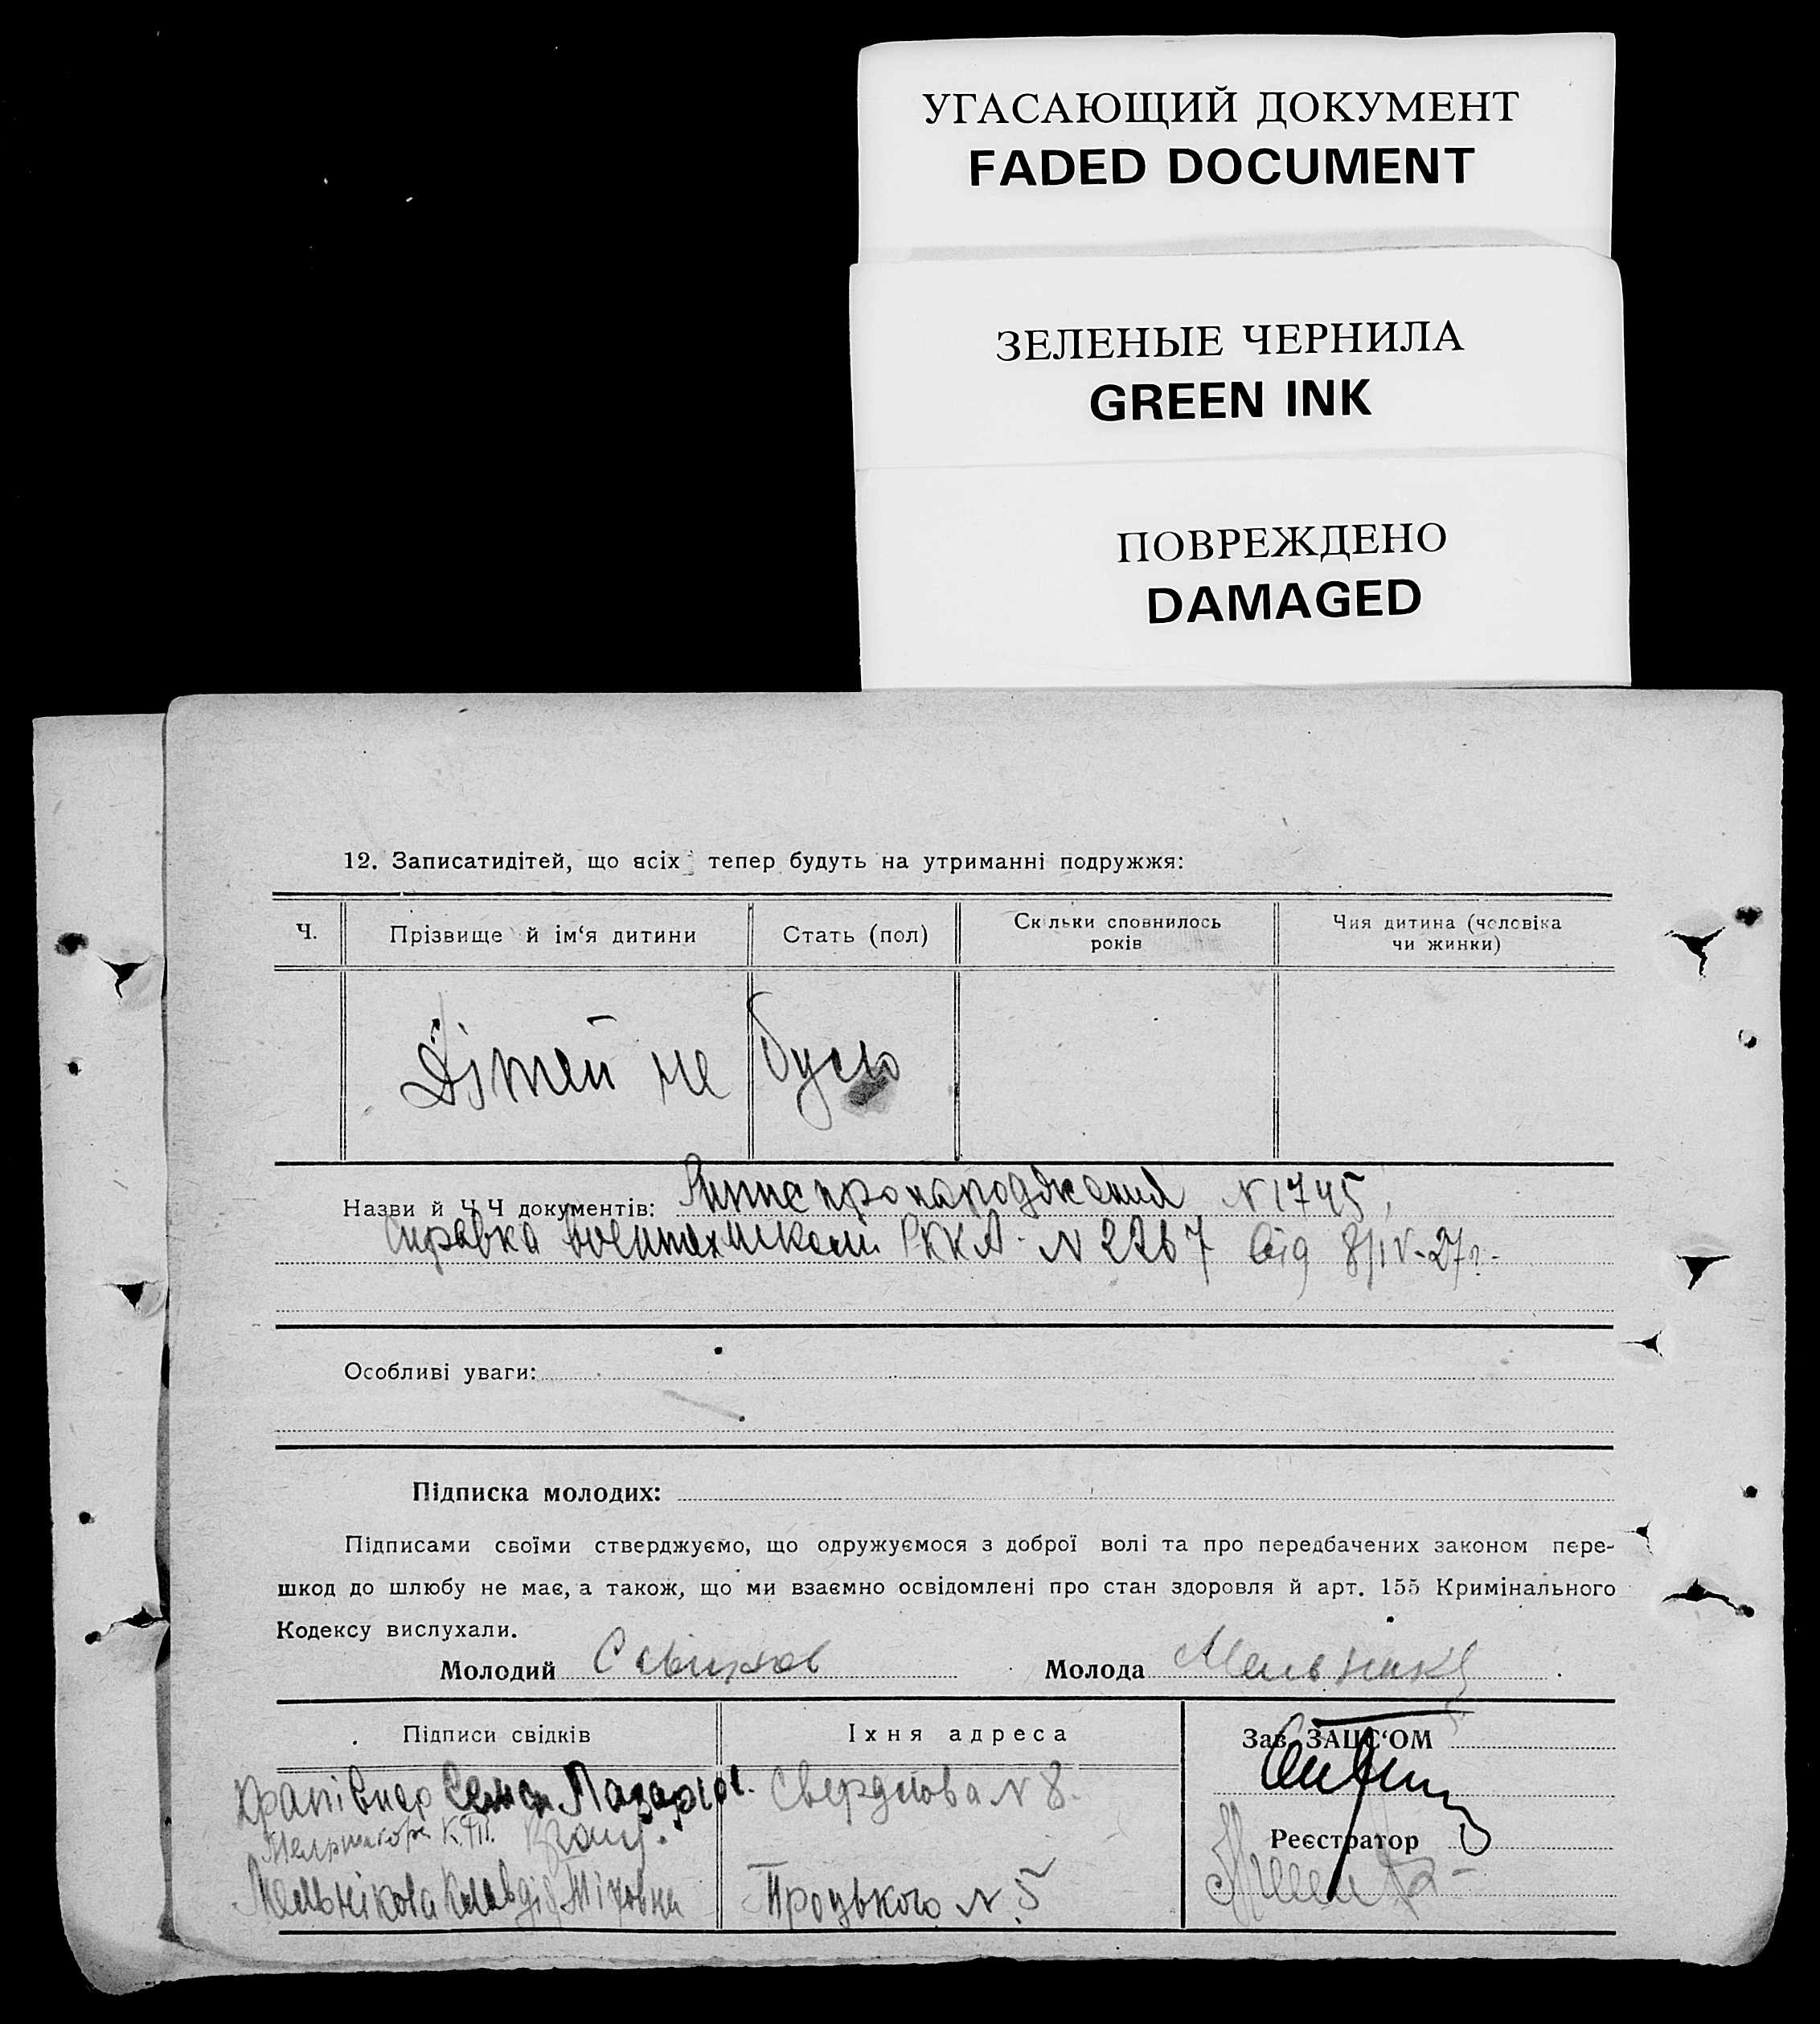 УГАСАЮЩИЙ ДОКУМЕНТ
FADED DOCUMENT
ЗЕЛЕНЫЕ ЧЕРНИЛА
GREEN INK
ПОВРЕЖДЕНО
DAMAGED
12. Записатидітей, що всіх тепер будуть на утриманні подружжя:
Ч.
Прізвище й ім‘я дитини
Стать (пол)
Скільки сповнилось
років
Чия дитина (чоловіка
чи жинки)
Дітей не було
Назви й Ч Ч документів: про народження N 1745,
справка РККА N 2267 від 8/IV-27г.
Особливі уваги:
Підписка молодих:
Підписами своїми стверджуємо, що одружуємося з доброї волі та про передбачених законом пере-
шкод до шлюбу не має, а також, що ми взаємно освідомлені про стан здоровля й арт. 155 Кримінального
Кодексу вислухали.
Молодий
Молода
Підписи свідків
Іхня адреса
Зав. ЗАЦС‘ОМ
Свердлова N 8.
Реєстратор
Мельнікова Клавдія Тітовна
Троцького N 5